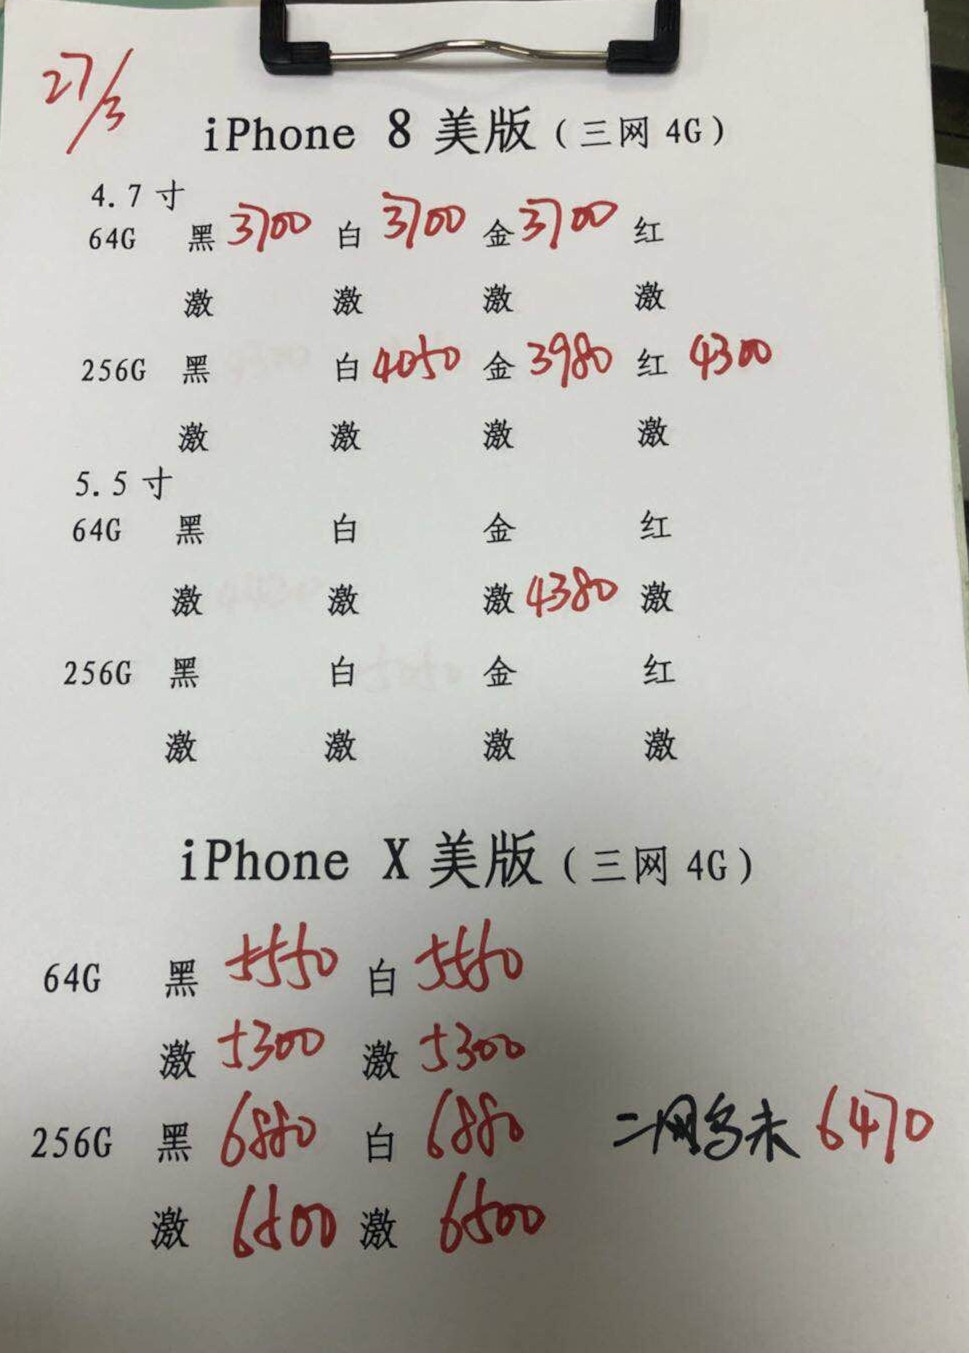 27/3
iPhone 8 美版（三网 4G）
4.7 寸
64G 黑 3700 白 3700 金 3700 红
激 激 激 激
256G 黑 白 4050 金 3980 红 4300
激 激 激 激
5.5 寸
64G 黑 白 金 红
激 激 激 4380 激
256G 黑 白 金 红
激 激 激 激
iPhone X 美版（三网 4G）
64G 黑 5550 白 5550
激 5300 激 5300
256G 黑 6880 白 6880 二网 未 6470
激 6500 激 6500